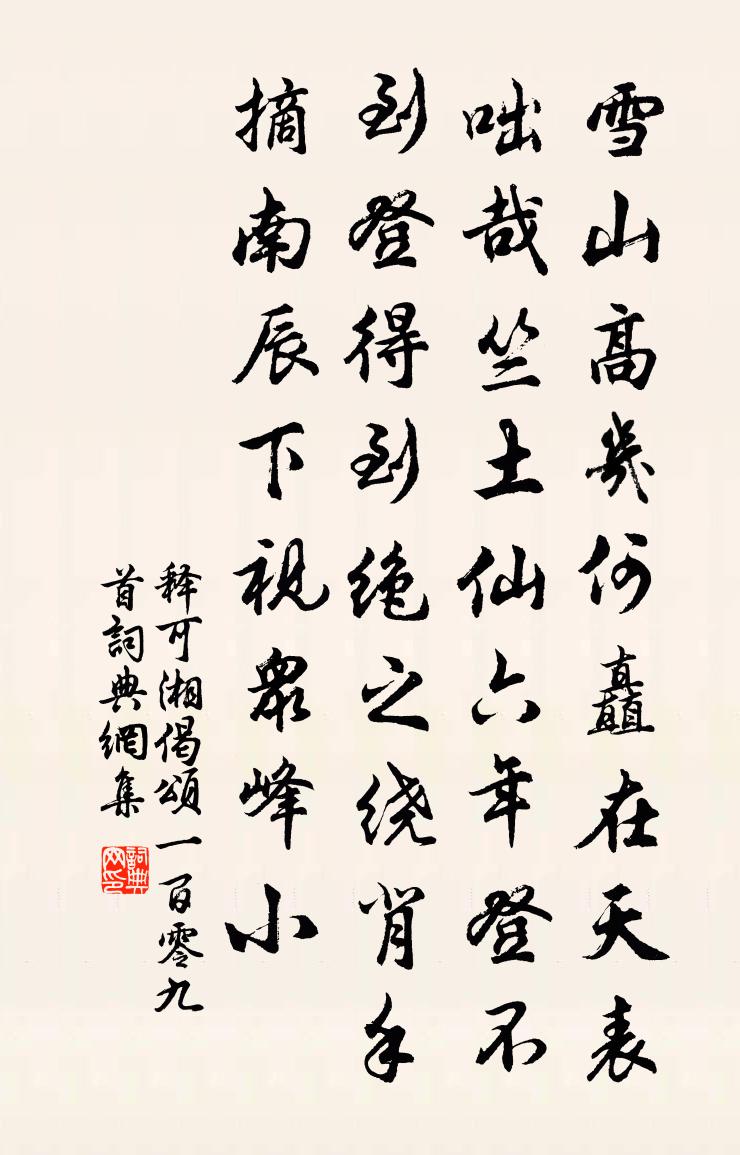 雪山高幾何矗在天表
咄哉竺土仙六年登不
到登得到绝之绕肖手
摘南辰下視眾峰小
释可湘偈頌一百零九
首詞典網集
詞典网印